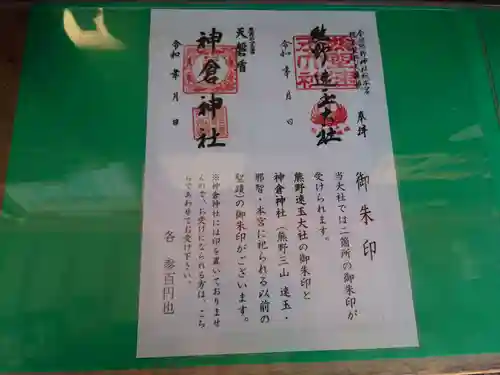 全国熊野神社総本宮
奉拝
熊野速玉大社
令和 年 月 日
天磐盾
神倉神社
令和 年 月 日
御朱印
当大社では二箇所の御朱印が
受けられます。
熊野速玉大社の御朱印と
神倉神社（熊野三山 速玉・
那智・本宮に祀られる以前の
聖蹟）の御朱印がございます。
※神倉神社には印を置いておりませ
んので、お受けになられる方は、こち
らであわせてお受け下さい。
各 参百円也